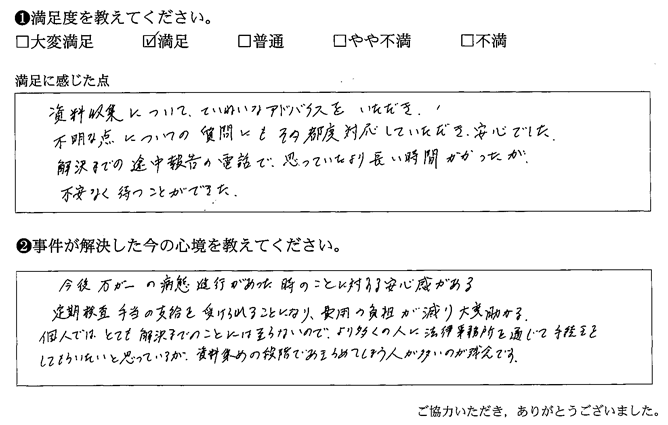 ❶満足度を教えてください。
□大変満足 ☑満足 □普通 □やや不満 □不満
満足に感じた点
資料収集について、ていねいなアドバイスをいただき、
不明な点についての質問にもその都度対応していただき、安心でした。
解決までの途中報告の電話で、思っていたより長い時間がかかったが、
不安なく待つことができた。
❷事件が解決した今の心境を教えてください。
今後万が一の病態進行があった時のことに対する安心感がある
定期検査手当の支給を受けられることになり、費用の負担が減り大変助かる。
個人では、とても解決までのことには至らないので、より多くの人に法律事務所を通じて手続きを
してもらいたいと思っているが、資料集めの段階であきらめてしまう人が多いのが残念です。
ご協力いただき，ありがとうございました。